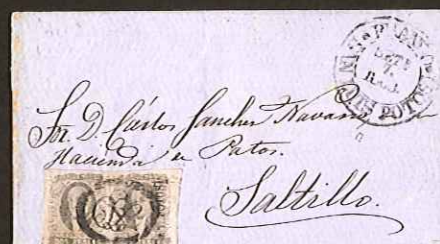 LUIS POTOSI
Sor. D. Cárlos Sanchez Navarro
Hacienda de Patos.
Saltillo.